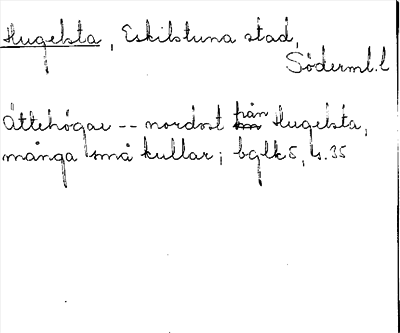 Hugelsta, Eskilstuna stad,
Söderml.l
Ättehögar -- nordost från Hugelsta,
många små kullar; bglk 5, s. 35